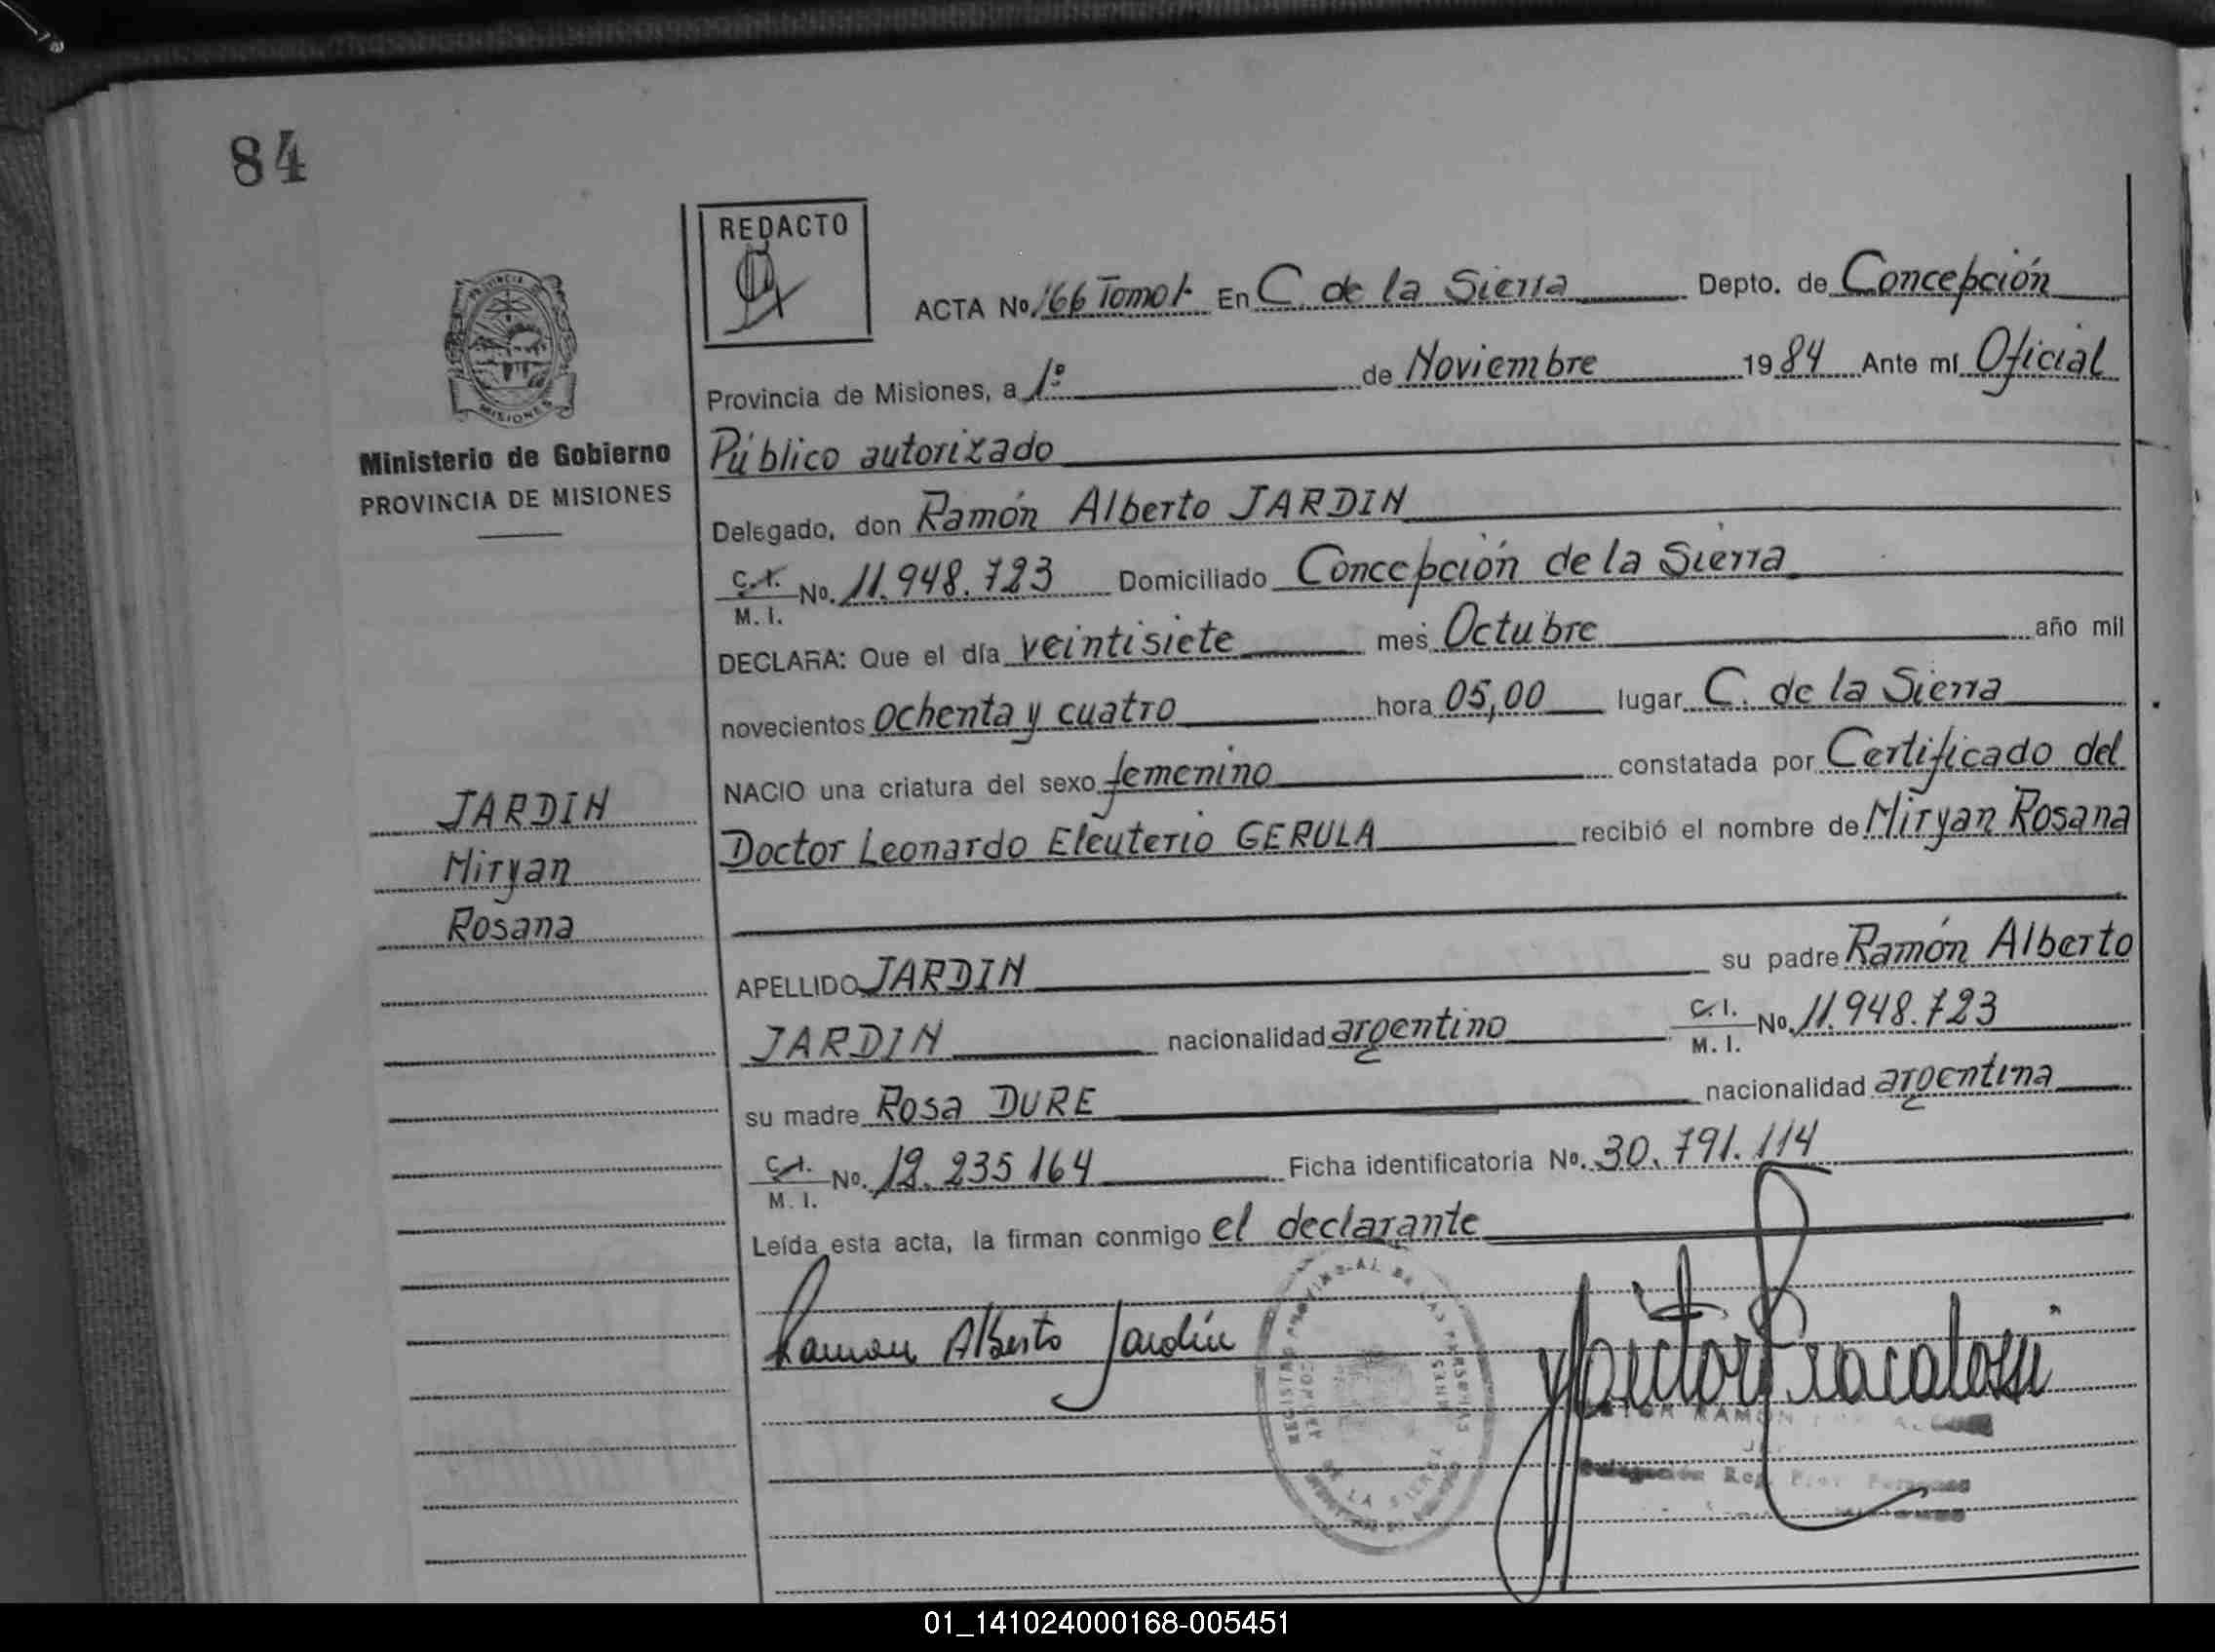 84
REDACTO
ACTA No. 166 Tomo 1º En C. de la Sierra Depto. de Concepción
Provincia de Misiones, a 1º de Noviembre 1984 Ante mí Oficial
Ministerio de Gobierno
PROVINCIA DE MISIONES
Público autorizado
Delegado, don Ramón Alberto JARDIN
C.I. M.I. No. 11.948.723 Domiciliado Concepción de la Sierra
DECLARA: Que el día veintisiete mes Octubre año mil
novecientos ochenta y cuatro hora 05,00 lugar C. de la Sierra
NACIO una criatura del sexo femenino constatada por Certificado del
JARDIN
Miryan
Rosana
Doctor Leonardo Eleuterio GERULA recibió el nombre de Miryan Rosana
APELLIDO JARDIN su padre Ramón Alberto
JARDIN nacionalidad argentino C.I. M.I. No. 11.948.723
su madre Rosa DURE nacionalidad argentina
C.I. M.I. No. 12.235 164 Ficha identificatoria No. 30.791.114
Leída esta acta, la firman conmigo el declarante
Ramon Alberto Jardín
01_141024000168-005451